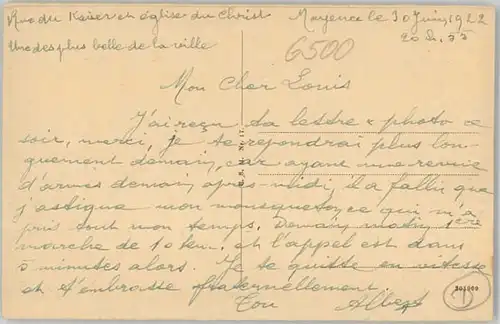 Rue du Kaiser et église du Christ
Une des plus belle de la ville
Mayence le 30 Juin 1922
20 h. 35
6500
Mon Cher Louis
J'ai reçu ta lettre & photo ce
soir, merci, je te répondrai plus lon-
guement demain, car ayant une revue
d'armes demain après-midi, il a fallu que
j'astique mon mousqueton, ce qui m'a
pris tout mon temps. Demain matin 1ère
marche de 10 km. et l'appel est dans
5 minutes alors. Je te quitte en vitesse
et t'embrasse fraternellement.
Ton Albert